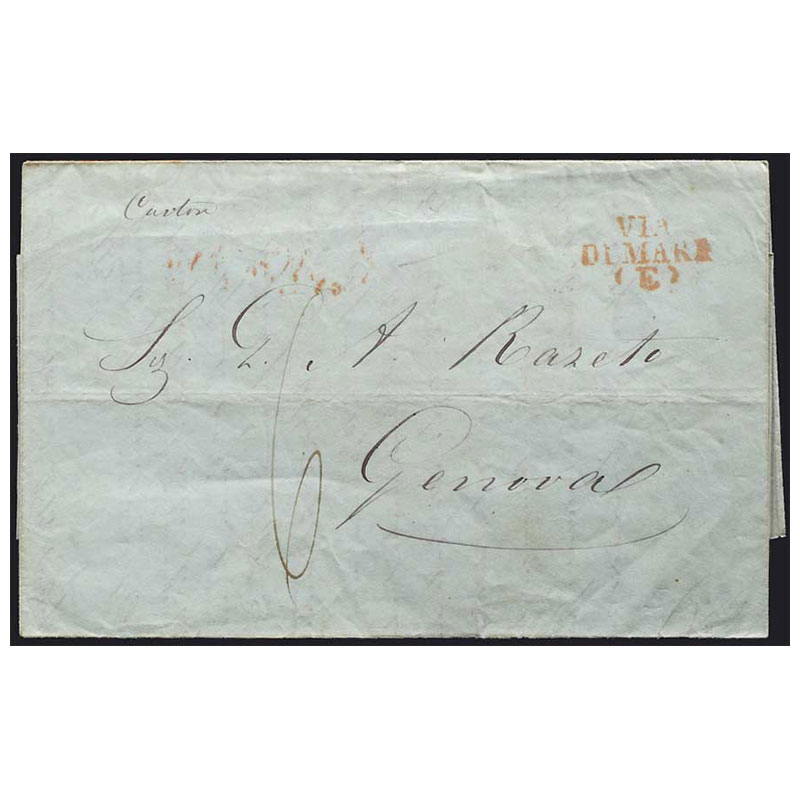 Caston
VIA
DI MARE
(E)
Sig. D. A. Razeto
6
Genova